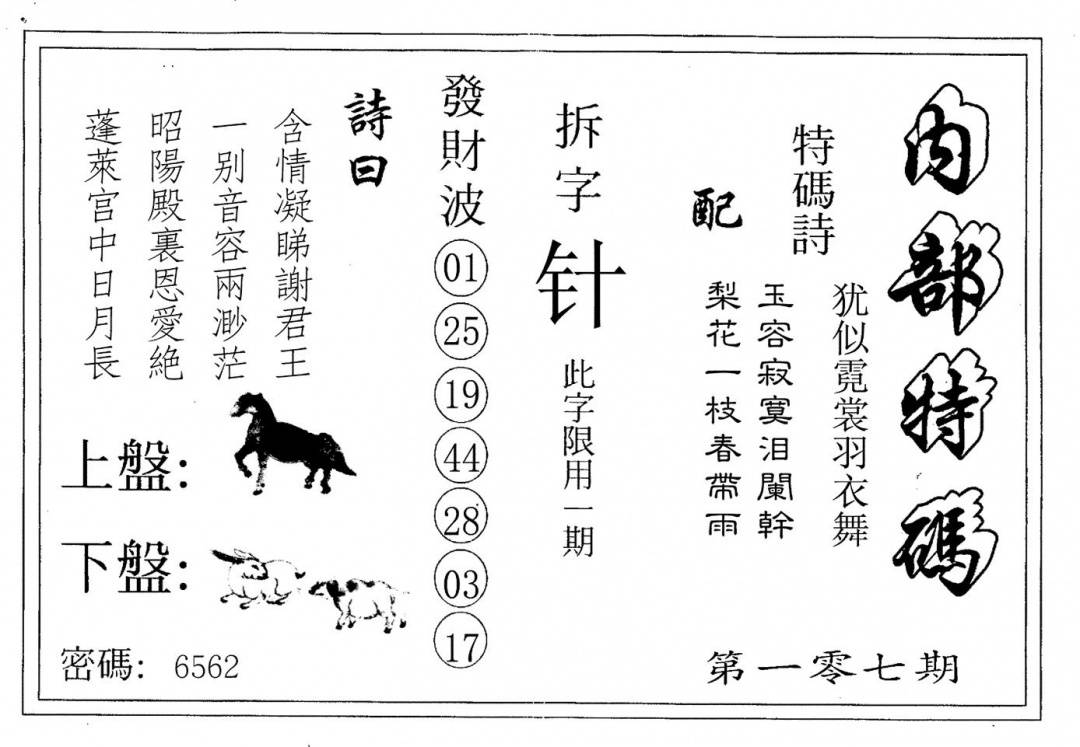 內部特碼
特碼詩
犹似霓裳羽衣舞
配
玉容寂寞泪闌幹
梨花一枝春帶雨
第一零七期
拆字
针
此字限用一期
發財波
01
25
19
44
28
03
17
詩曰
含情凝睇謝君王
一别音容兩渺茫
昭陽殿裏恩愛絶
蓬萊宫中日月長
上盤：
下盤：
密碼：6562